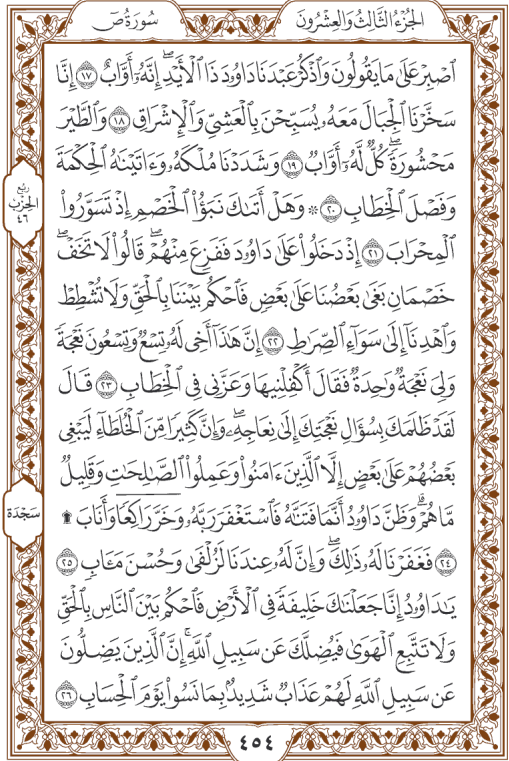 الجزء الثالث والعشرون
سورة ص
ٱصْبِرْ عَلَىٰ مَا يَقُولُونَ وَٱذْكُرْ عَبْدَنَا دَاوُۥدَ ذَا ٱلْأَيْدِۖ إِنَّهُۥٓ أَوَّابٌ ١٧ إِنَّا
سَخَّرْنَا ٱلْجِبَالَ مَعَهُۥ يُسَبِّحْنَ بِٱلْعَشِيِّ وَٱلْإِشْرَاقِ ١٨ وَٱلطَّيْرَ
مَحْشُورَةًۖ كُلٌّ لَّهُۥٓ أَوَّابٌ ١٩ وَشَدَدْنَا مُلْكَهُۥ وَءَاتَيْنَٰهُ ٱلْحِكْمَةَ
وَفَصْلَ ٱلْخِطَابِ ٢٠ ۞ وَهَلْ أَتَىٰكَ نَبَؤُاْ ٱلْخَصْمِ إِذْ تَسَوَّرُواْ
ٱلْمِحْرَابَ ٢١ إِذْ دَخَلُواْ عَلَىٰ دَاوُۥدَ فَفَزِعَ مِنْهُمْۖ قَالُواْ لَا تَخَفْۖ
خَصْمَانِ بَغَىٰ بَعْضُنَا عَلَىٰ بَعْضٍ فَٱحْكُم بَيْنَنَا بِٱلْحَقِّ وَلَا تُشْطِطْ
وَٱهْدِنَآ إِلَىٰ سَوَآءِ ٱلصِّرَٰطِ ٢٢ إِنَّ هَٰذَآ أَخِى لَهُۥ تِسْعٌ وَتِسْعُونَ نَعْجَةً
وَلِىَ نَعْجَةٌ وَٰحِدَةٌ فَقَالَ أَكْفِلْنِيهَا وَعَزَّنِى فِى ٱلْخِطَابِ ٢٣ قَالَ
لَقَدْ ظَلَمَكَ بِسُؤَالِ نَعْجَتِكَ إِلَىٰ نِعَاجِهِۦۖ وَإِنَّ كَثِيرًا مِّنَ ٱلْخُلَطَآءِ لَيَبْغِى
بَعْضُهُمْ عَلَىٰ بَعْضٍ إِلَّا ٱلَّذِينَ ءَامَنُواْ وَعَمِلُواْ ٱلصَّٰلِحَٰتِ وَقَلِيلٌ
مَّا هُمْۗ وَظَنَّ دَاوُۥدُ أَنَّمَا فَتَنَّٰهُ فَٱسْتَغْفَرَ رَبَّهُۥ وَخَرَّ رَاكِعًا وَأَنَابَ ۩
٢٤ فَغَفَرْنَا لَهُۥ ذَٰلِكَۖ وَإِنَّ لَهُۥ عِندَنَا لَزُلْفَىٰ وَحُسْنَ مَـَٔابٍ ٢٥
يَٰدَاوُۥدُ إِنَّا جَعَلْنَٰكَ خَلِيفَةً فِى ٱلْأَرْضِ فَٱحْكُم بَيْنَ ٱلنَّاسِ بِٱلْحَقِّ
وَلَا تَتَّبِعِ ٱلْهَوَىٰ فَيُضِلَّكَ عَن سَبِيلِ ٱللَّهِۚ إِنَّ ٱلَّذِينَ يَضِلُّونَ
عَن سَبِيلِ ٱللَّهِ لَهُمْ عَذَابٌ شَدِيدٌۢ بِمَا نَسُواْ يَوْمَ ٱلْحِسَابِ ٢٦
ربع
الحزب
٤٦
سجدة
٤٥٤